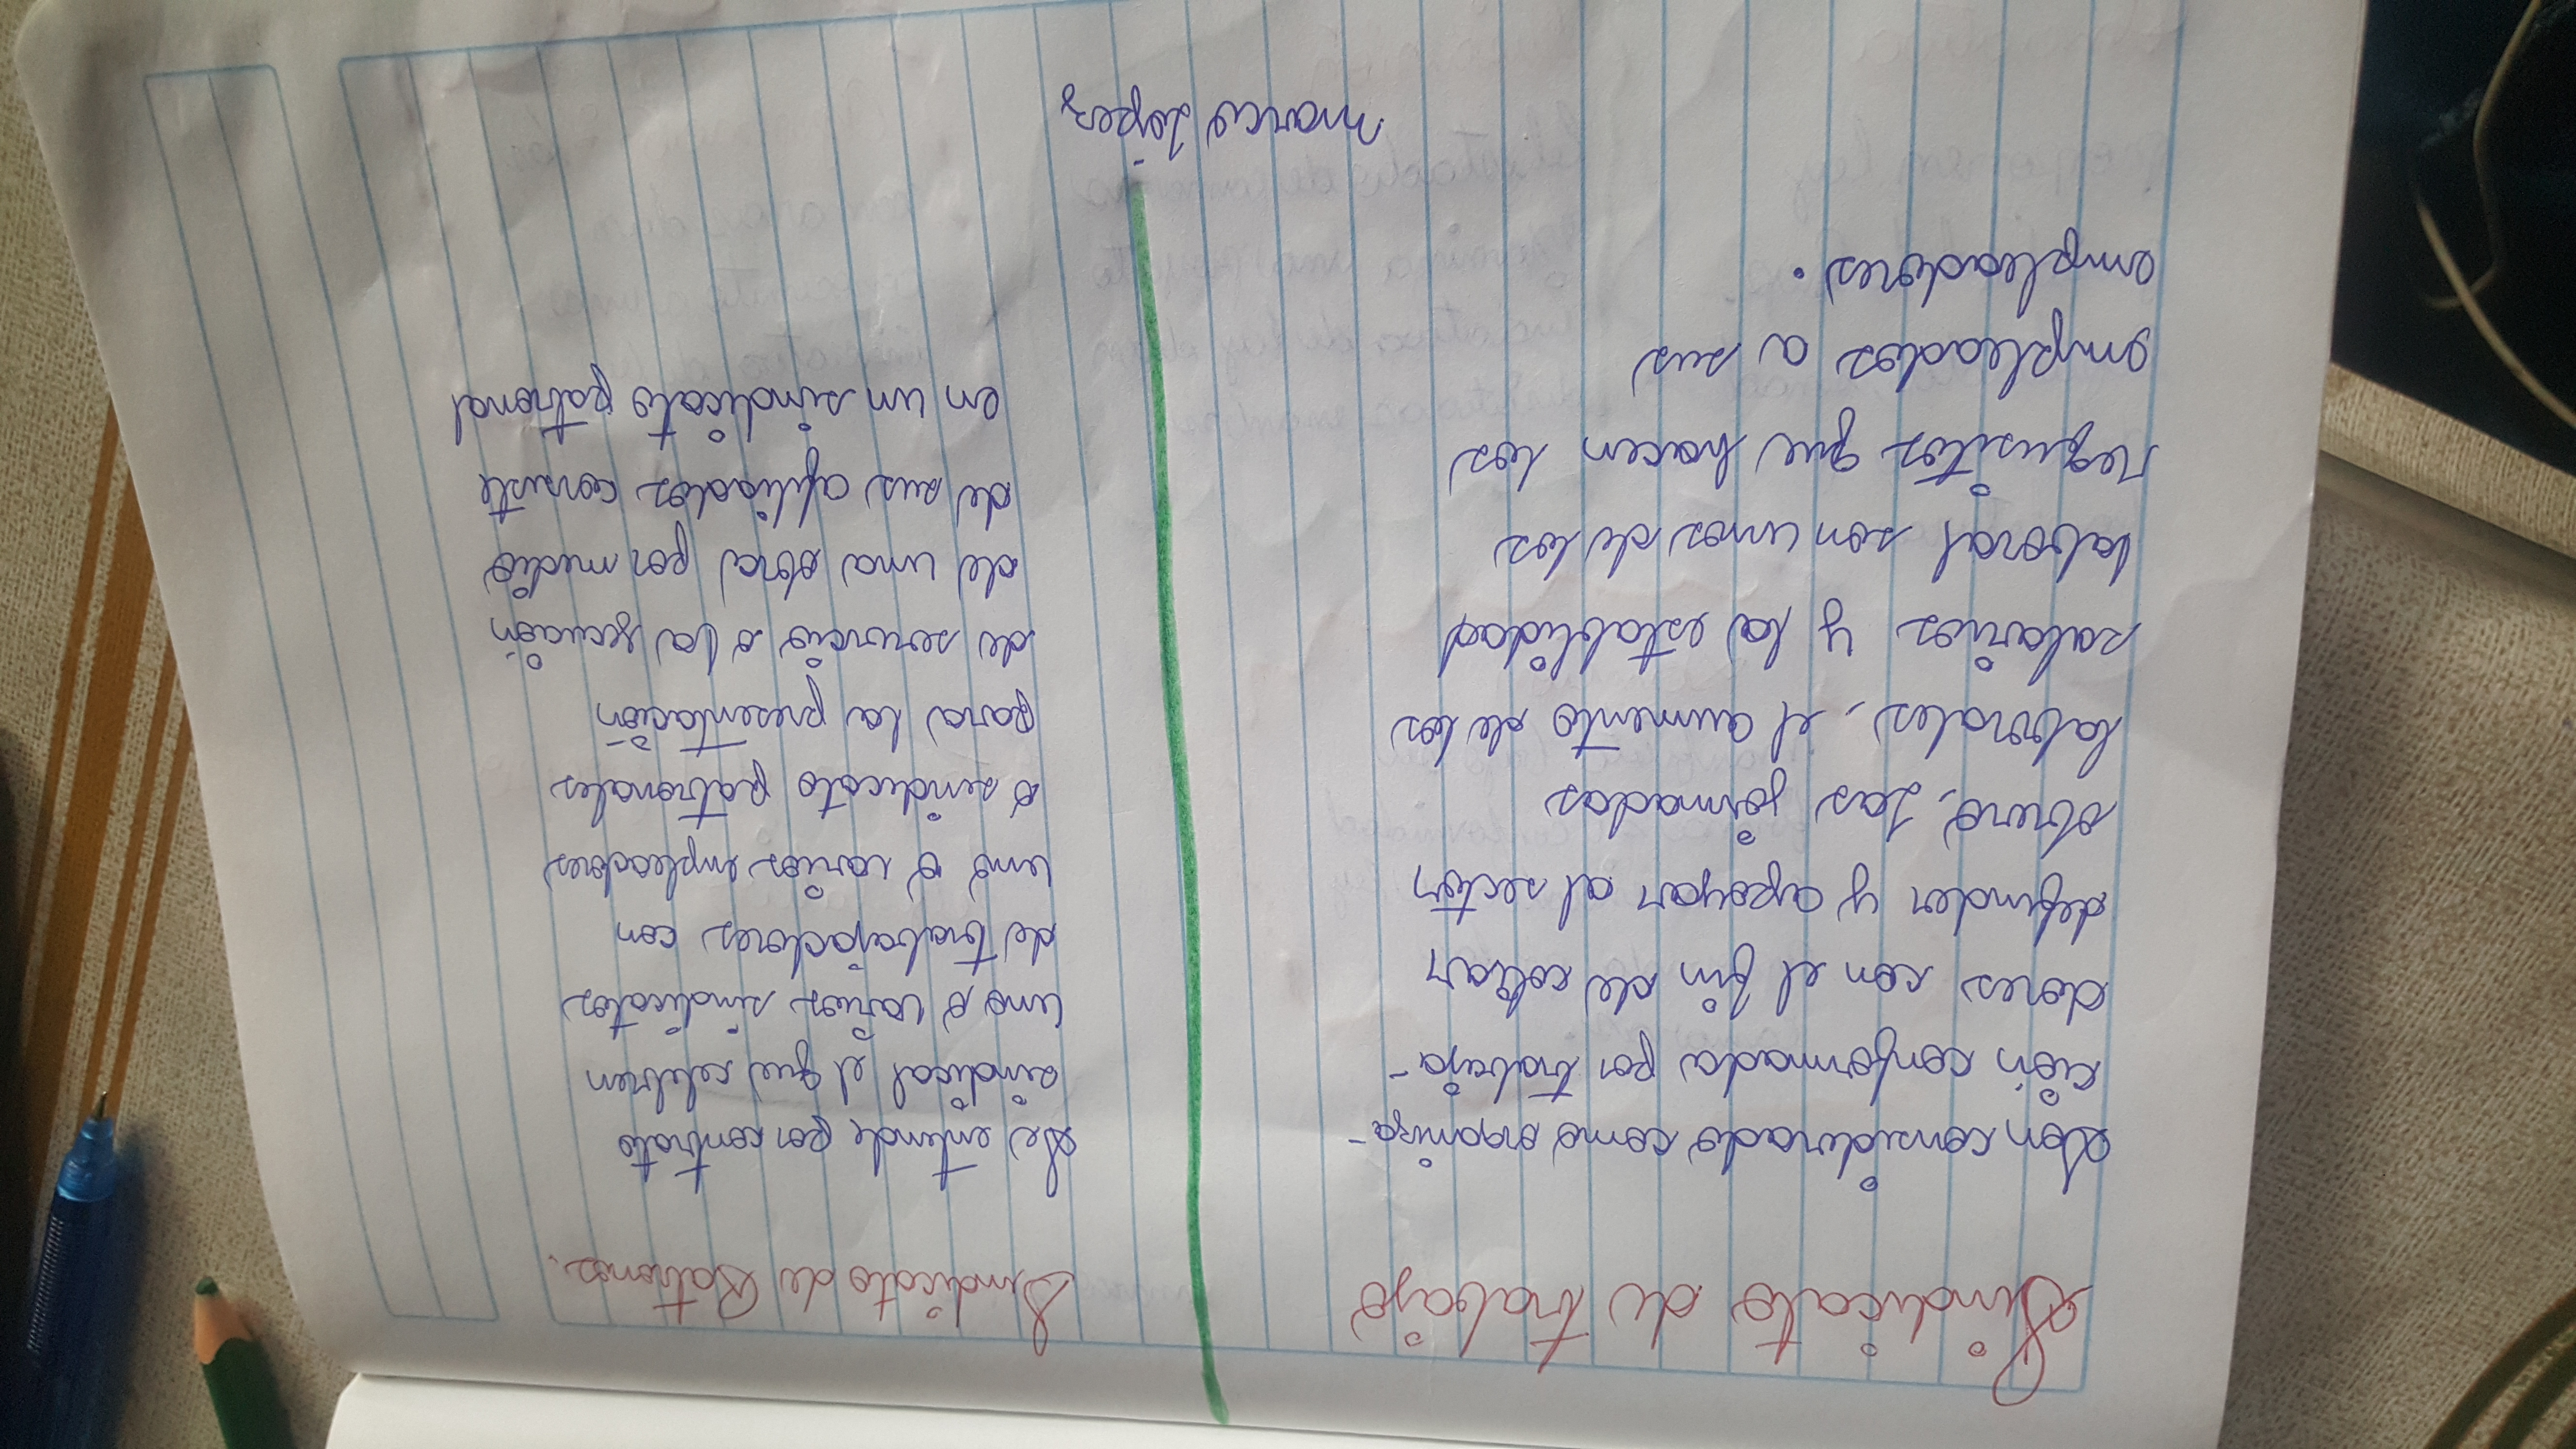 Sindicato de trabajo
Son considerado como organiza-
ción conformada por trabaja-
dores con el fin de cotian
defienden y apoyan al sector
obrero, Las jornadas
laborales, el aumento de los
salarios y la estabilidad
laboral son unos de los
requisitos que hacen los
empleados a sus
empleadores.
Sindicato de Patronos.
Se entiende por contrato
sindical el que celebren
uno o varios sindicatos
de trabajadores con
uno o varios empleadores
o sindicato patronales
para la presentación
de servicio o la
de una obra por medio
de sus afiliados consiste
en un sindicato patronal
marco López